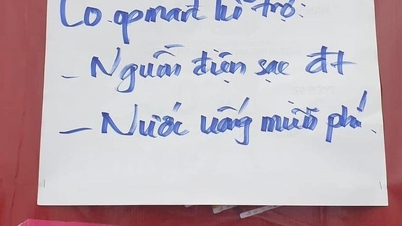 Co.opmart hỗ trợ:
- Nguồn điện sạc đt
- Nước uống miễn phí.